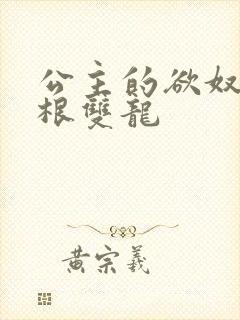 公主的欲奴
根雙龍
黃宗羲